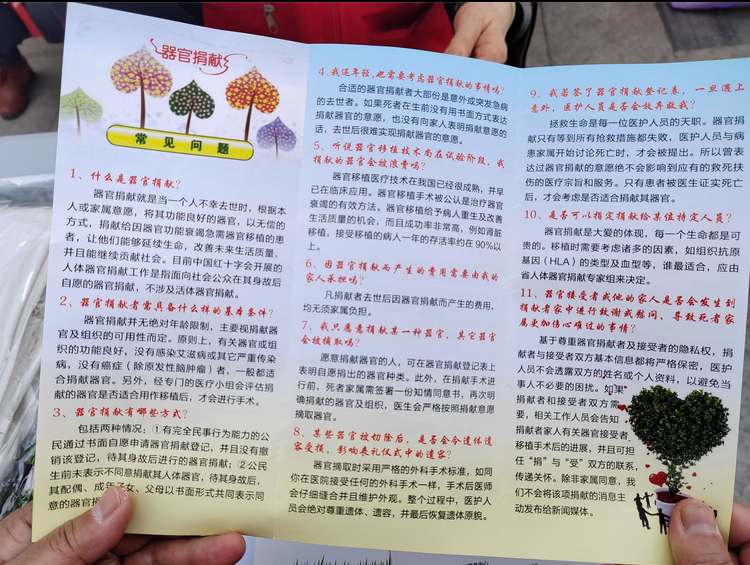 器官捐献
常见问题
1、什么是器官捐献？
器官捐献就是当一个人不幸去世时，根据本
人或家属意愿，将其功能良好的器官，以无偿的
方式，捐献给因器官功能衰竭急需器官移植的患
者，让他们能够延续生命，改善未来生活质量，
并且能继续贡献社会。目前中国红十字会开展的
人体器官捐献工作是指面向社会公众在其身故后
自愿的器官捐献，不涉及活体器官捐献。
2、器官捐献者需具备什么样的基本条件？
器官捐献并无绝对年龄限制，主要视捐献器
官及组织的可用性而定。原则上，有关器官或组
织的功能良好，没有感染艾滋病或其它严重传染
病，没有癌症（除原发性脑肿瘤）者，一般都适
合捐献器官。另外，经专门的医疗小组会评估捐
献的器官是否适合用作移植后，才会进行手术。
3、器官捐献有哪些方式？
包括两种情况：①有完全民事行为能力的公
民通过书面自愿申请器官捐献登记，并且没有撤
销该登记，待其身故后进行的器官捐献；②公民
生前未表示不同意捐献其人体器官，待其身故后，
其配偶、成年子女、父母以书面形式共同表示同
意的器官捐
4、我还年轻，也需要考虑器官捐献的事情吗？
合适的器官捐献者大部份是意外或突发急病
的去世者。如果死者在生前没有用书面方式表达
捐献器官的意愿，也没有向家人表明捐献意愿的
话，去世后很难实现捐献器官的意愿。
5、听说器官移植技术尚在试验阶段，我
捐献的器官会被浪费吗？
器官移植医疗技术在我国已经很成熟，并早
已在临床应用。器官移植手术被公认是治疗器官
衰竭的有效方法。器官移植给予病人重生及改善
生活质量的机会，而且成功率非常高，例如肾脏
移植，接受移植的病人一年的存活率约在 90%以
上。
6、因器官捐献而产生的费用需要由我的
家人承担吗？
凡捐献者去世后因器官捐献而产生的费用，
均无须家属负担。
7、我只愿意捐献某一种器官，其它器官
会被摘取吗？
愿意捐献器官的人，可在器官捐献登记表上
表明自愿捐出的器官种类。此外，在捐献手术进
行前，死者家属需签署一份知情同意书，再次明
确捐献的器官及组织，医生会严格按照捐献意愿
摘取器官。
8、某些器官被切除后，是否会令遗体遗
容受损，影响表礼仪式中的遗容？
器官摘取时采用严格的外科手术标准，如同
你在医院接受任何的外科手术一样，手术后医师
会仔细缝合并且维护外观。整个过程中，医护人
员会绝对尊重遗体、遗容，并最后恢复遗体原貌。
9、我若签了器官捐献登记表，一旦遇上
意外，医护人员是否会放弃救我？
拯救生命是每一位医护人员的天职。器官捐
献只有等到所有抢救措施都失败，医护人员与病
患家属开始讨论死亡时，才会被提出。所以曾表
达过器官捐献的意愿绝不会影响到应有的救死扶
伤的医疗宗旨和服务。只有患者被医生证实死亡
后，才会考虑是否适合捐献其器官。
10、是否可以指定捐给某位特定人员？
器官捐献是大爱的体现，每一个生命都是可
贵的。移植时需要考虑诸多的因素，如组织抗原
基因（HLA）的类型及血型等，谁最适合，应由
省人体器官捐献专家组来决定。
11、器官接受者或他的家人是否会发生到
捐献者家中进行致谢或慰问，导致死者家
属更加伤心难过的事情？
基于尊重器官捐献者及接受者的隐私权，捐
献者与接受者双方基本信息都将严格保密，医护
人员不会透露双方的姓名或个人资料，以避免当
事人不必要的困扰。如果
捐献者和接受者双方需
要，相关工作人员会告知
捐献者家人有关器官接受者
移植手术后的进展，并且可担
任“捐”与“受”双方的联系，
传递关怀。除非家属同意，我
们不会将该项捐献的消息主
动发布给新闻媒体。